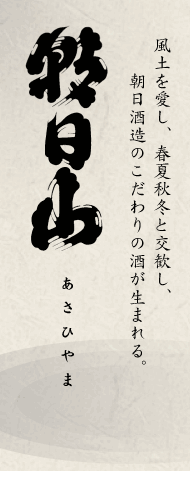 風土を愛し、春夏秋冬と交歓し、
朝日酒造のこだわりの酒が生まれる。
朝日山
あさひやま